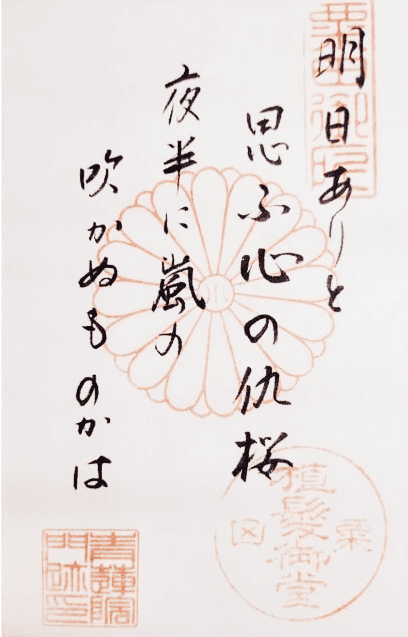 粟田御所
明日ありと
思ふ心の仇桜
夜半に嵐の
吹かぬものかは
植髪御堂
粟田
青蓮院
門跡印